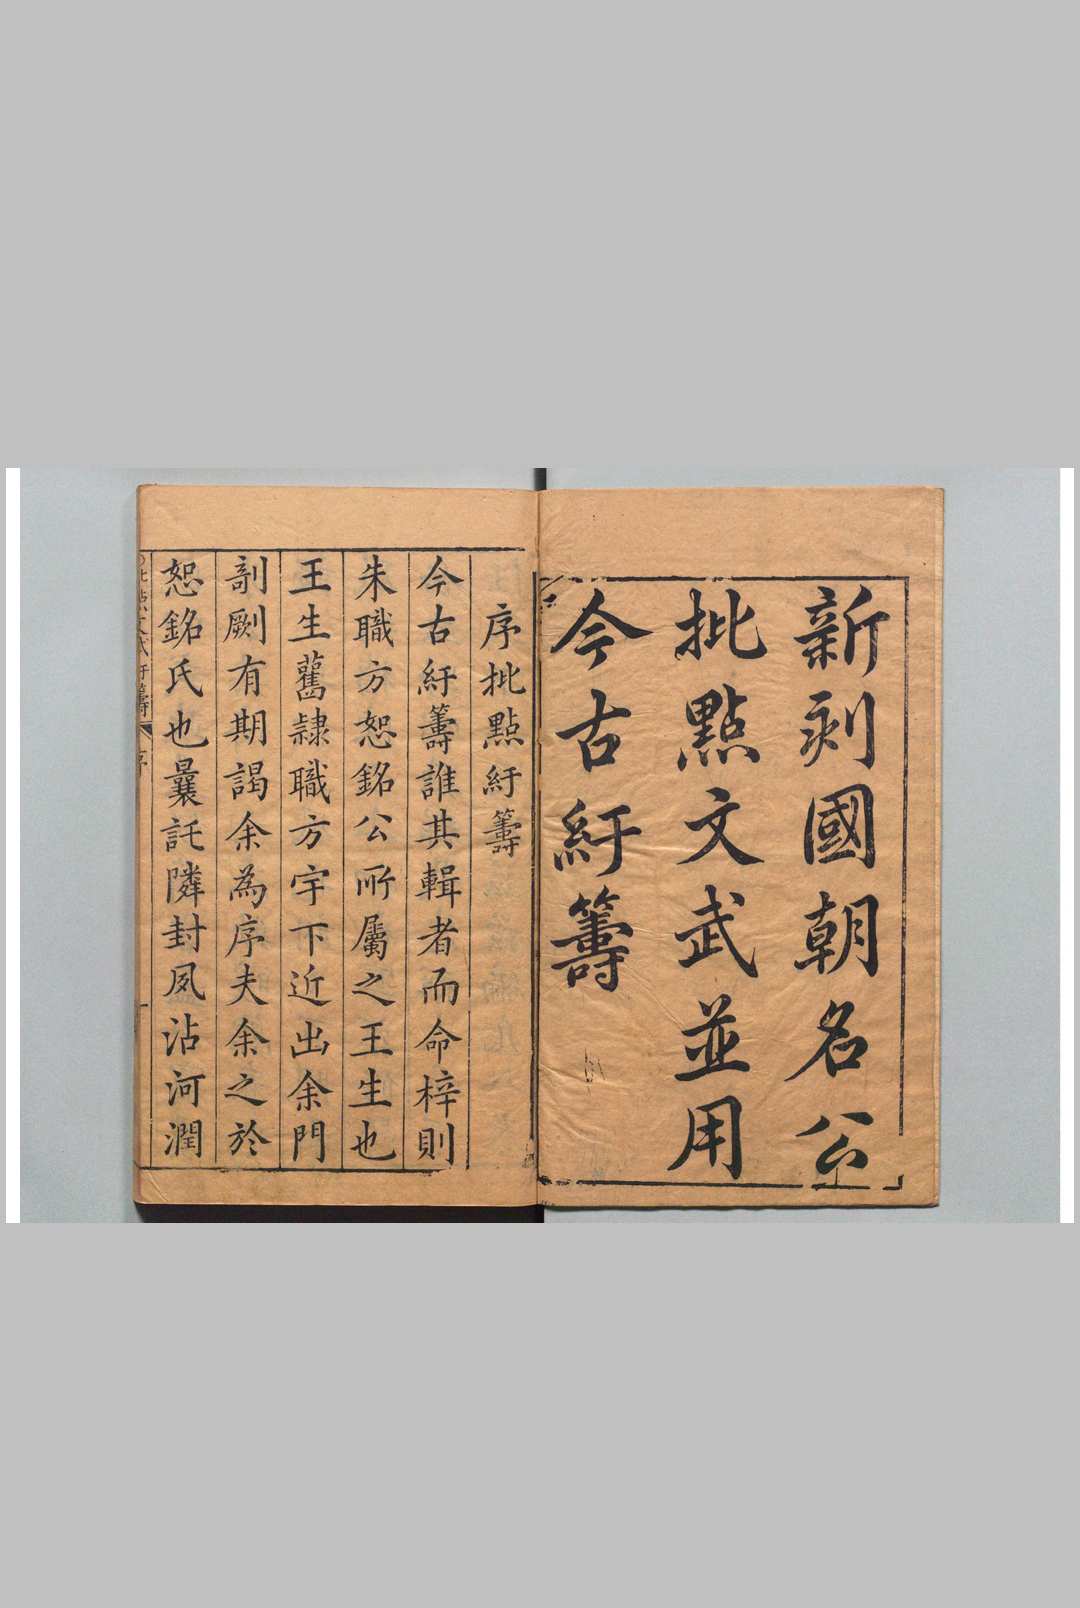 新刻國朝名公
批點文武並用
今古紆籌
序批點紆籌
今古紆籌誰其輯者而命梓則
朱職方恕銘公所屬之王生也
王生舊隷職方宇下近出余門
剞劂有期謁余為序夫余之於
恕銘氏也曩託隣封夙沾河潤